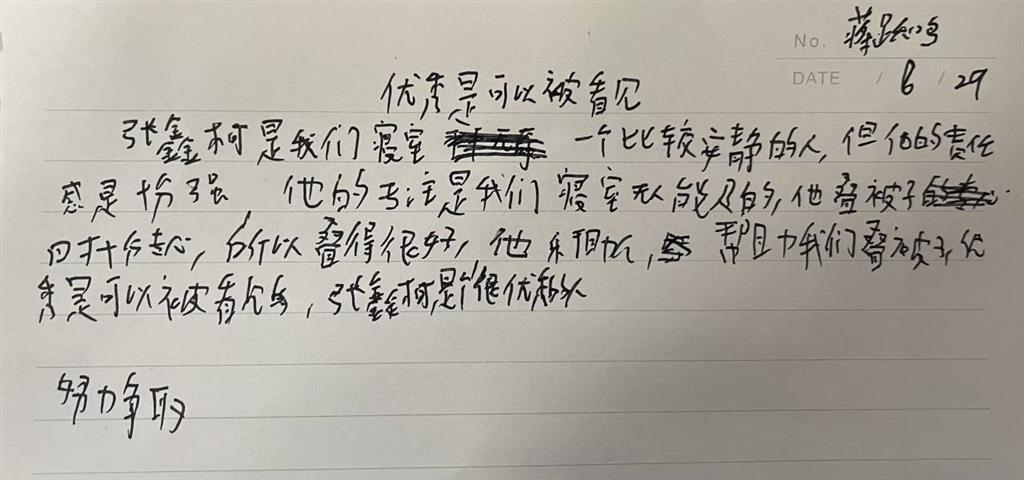 No. 蒋
DATE / 6 / 29
优秀是可以被看见
张鑫柯是我们寝室 一个比较安静的人,但他的责任
感是十分强,他的专注是我们寝室无人能及的,他叠被子
时十分专心,所以叠得很好,他乐于助人,帮助我们叠被子,优
秀是可以被看见的,张鑫柯是个很优秀的人
努力争取